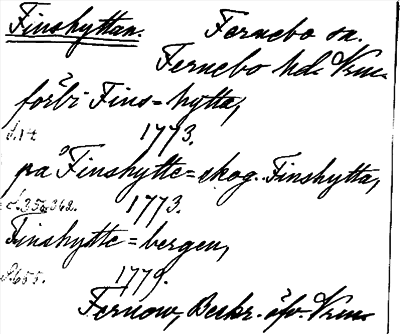 Finshyttan. Fernebo sn.
Fernebo hd. Vrm.
förbi Fins=hytta,
s. 14 1773.
på Finshytte=skog. Finshytta,
s. 356, 362. 1773.
Finshytte=bergen,
s. 655. 1779.
Fernow, Beskr. öfv. Vrm.